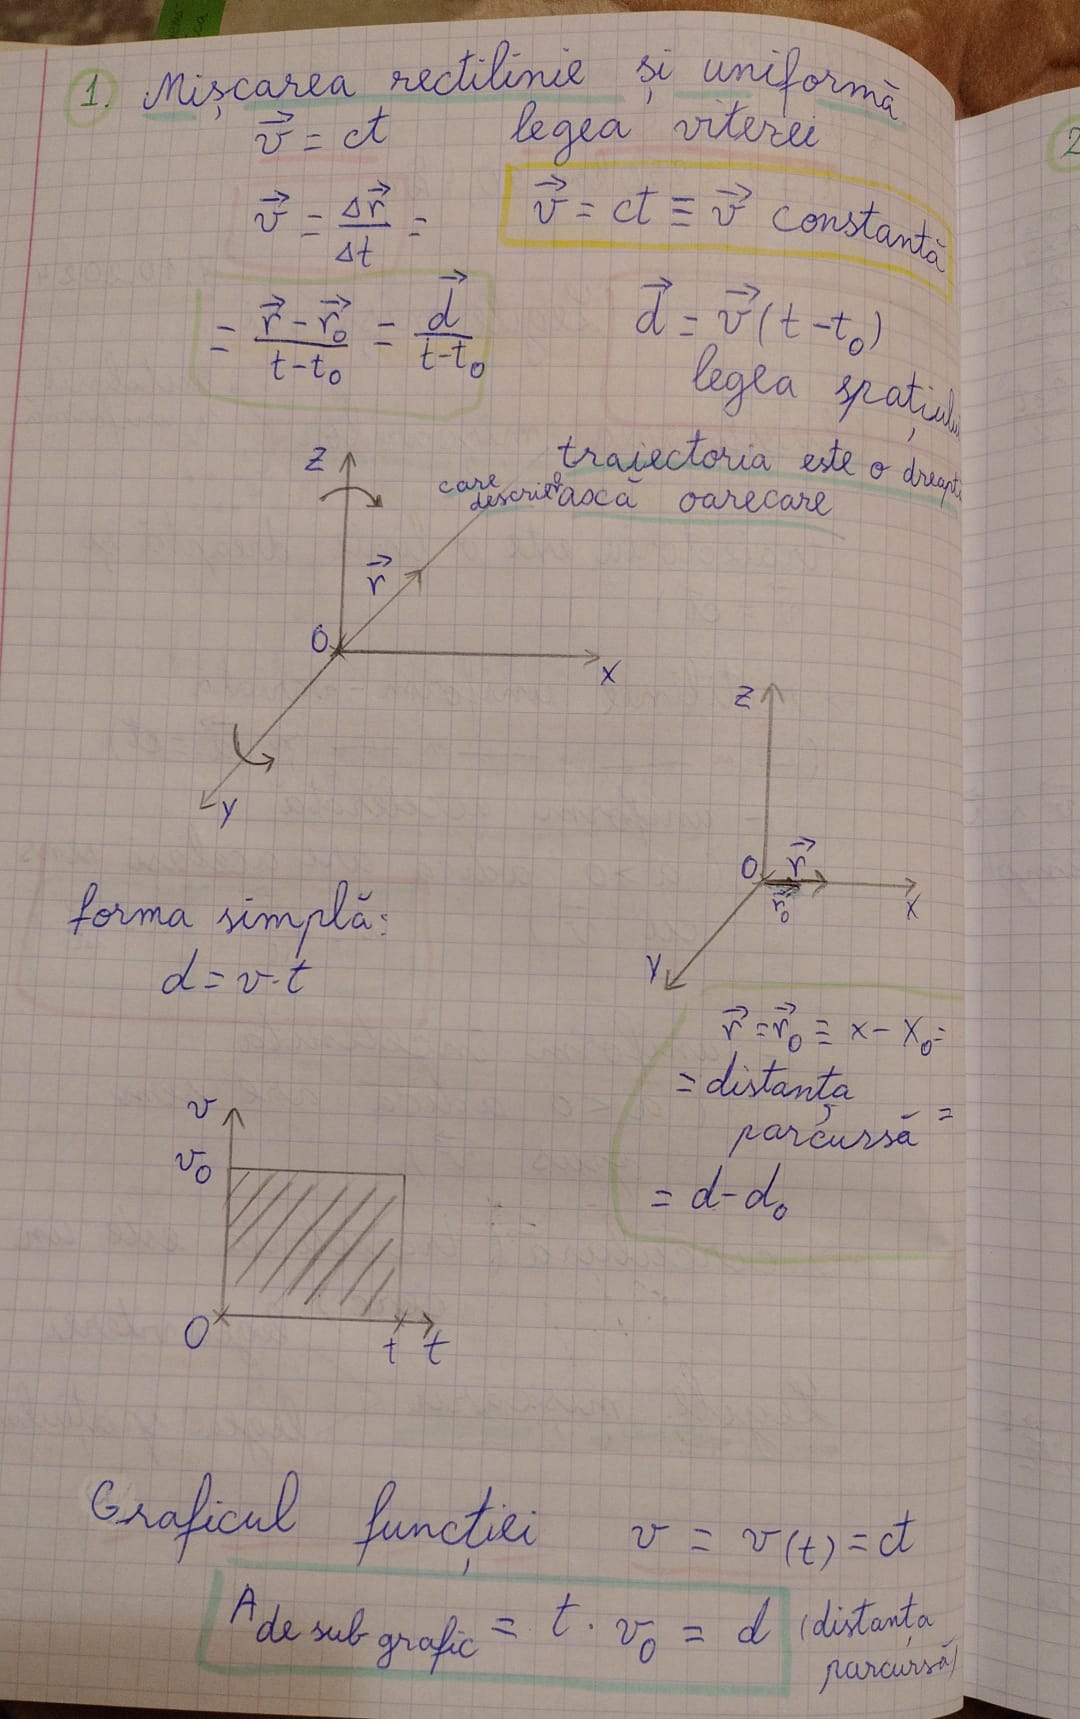 1. Mișcarea rectilinie și uniformă
v⃗ = ct legea vitezei
v⃗ = Δr⃗/Δt =
v⃗ = ct ≡ v⃗ constantă
= (r⃗ - r⃗₀)/(t - t₀) = d⃗/(t - t₀)
d⃗ = v⃗ (t - t₀)
legea spațiului
traiectoria este o dreaptă
care descrie o axă oarecare
Z
r⃗
O
X
Y
Z
O
r⃗
r⃗₀
X
Y
forma simplă:
d = v·t
r⃗ = r⃗₀ ≡ x - x₀ =
= distanța
parcursă =
= d - d₀
v
v₀
O
t t
Graficul funcției v = v(t) = ct
A de sub grafic = t · v₀ = d (distanța
parcursă)
2